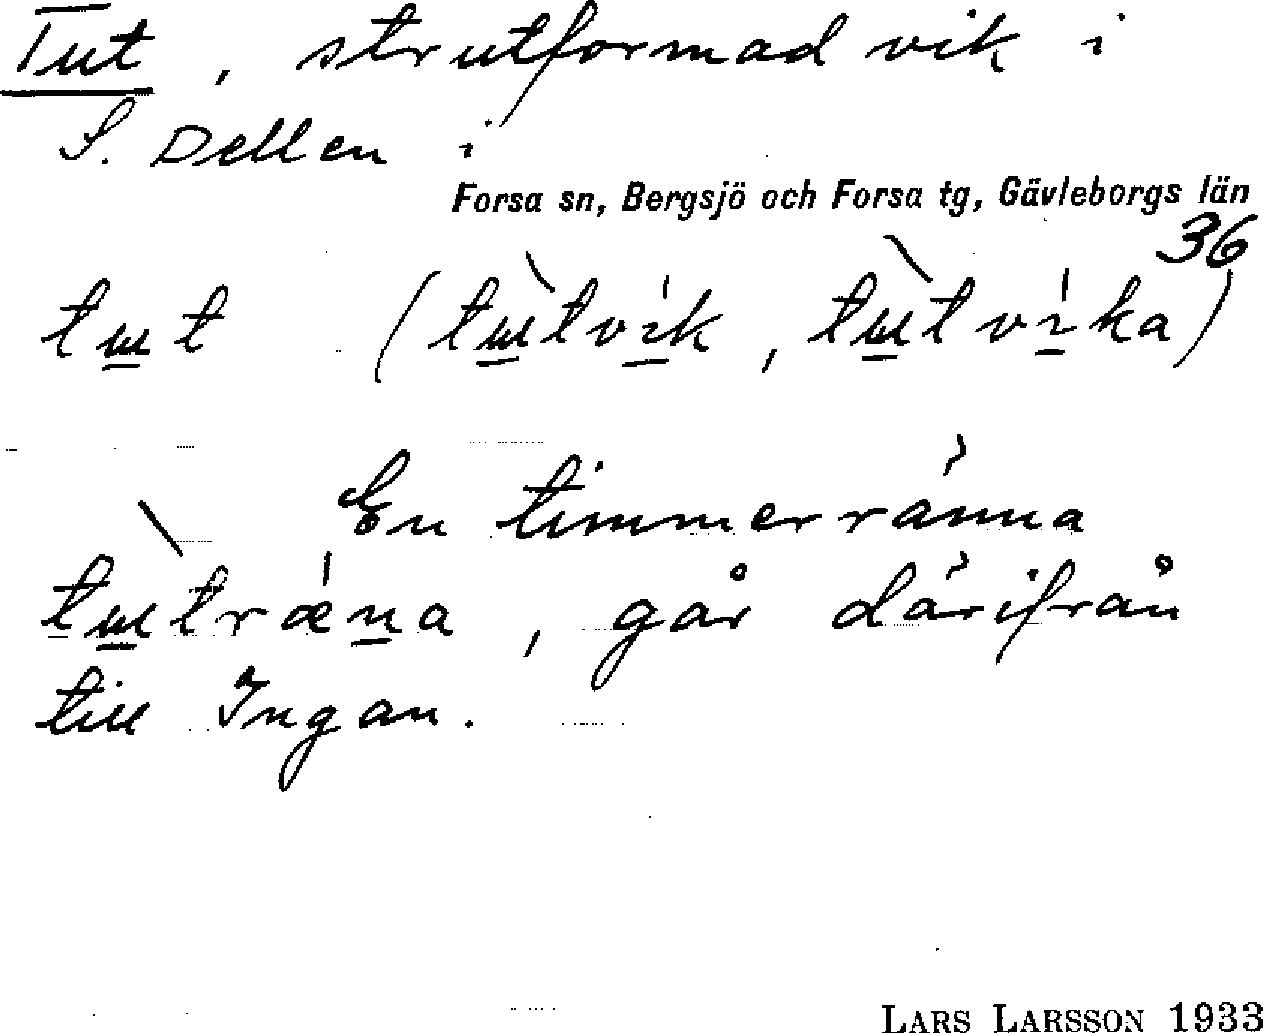 Tut, strutformad vik i
S. Dellen i
Forsa sn, Bergsjö och Forsa tg, Gävleborgs län
36
tɯt (tɯ̀tvík, tɯ̀tvíka)
En timmerränna
tɯ̀trǽna, går därifrån
till Ingan.
LARS LARSSON 1933